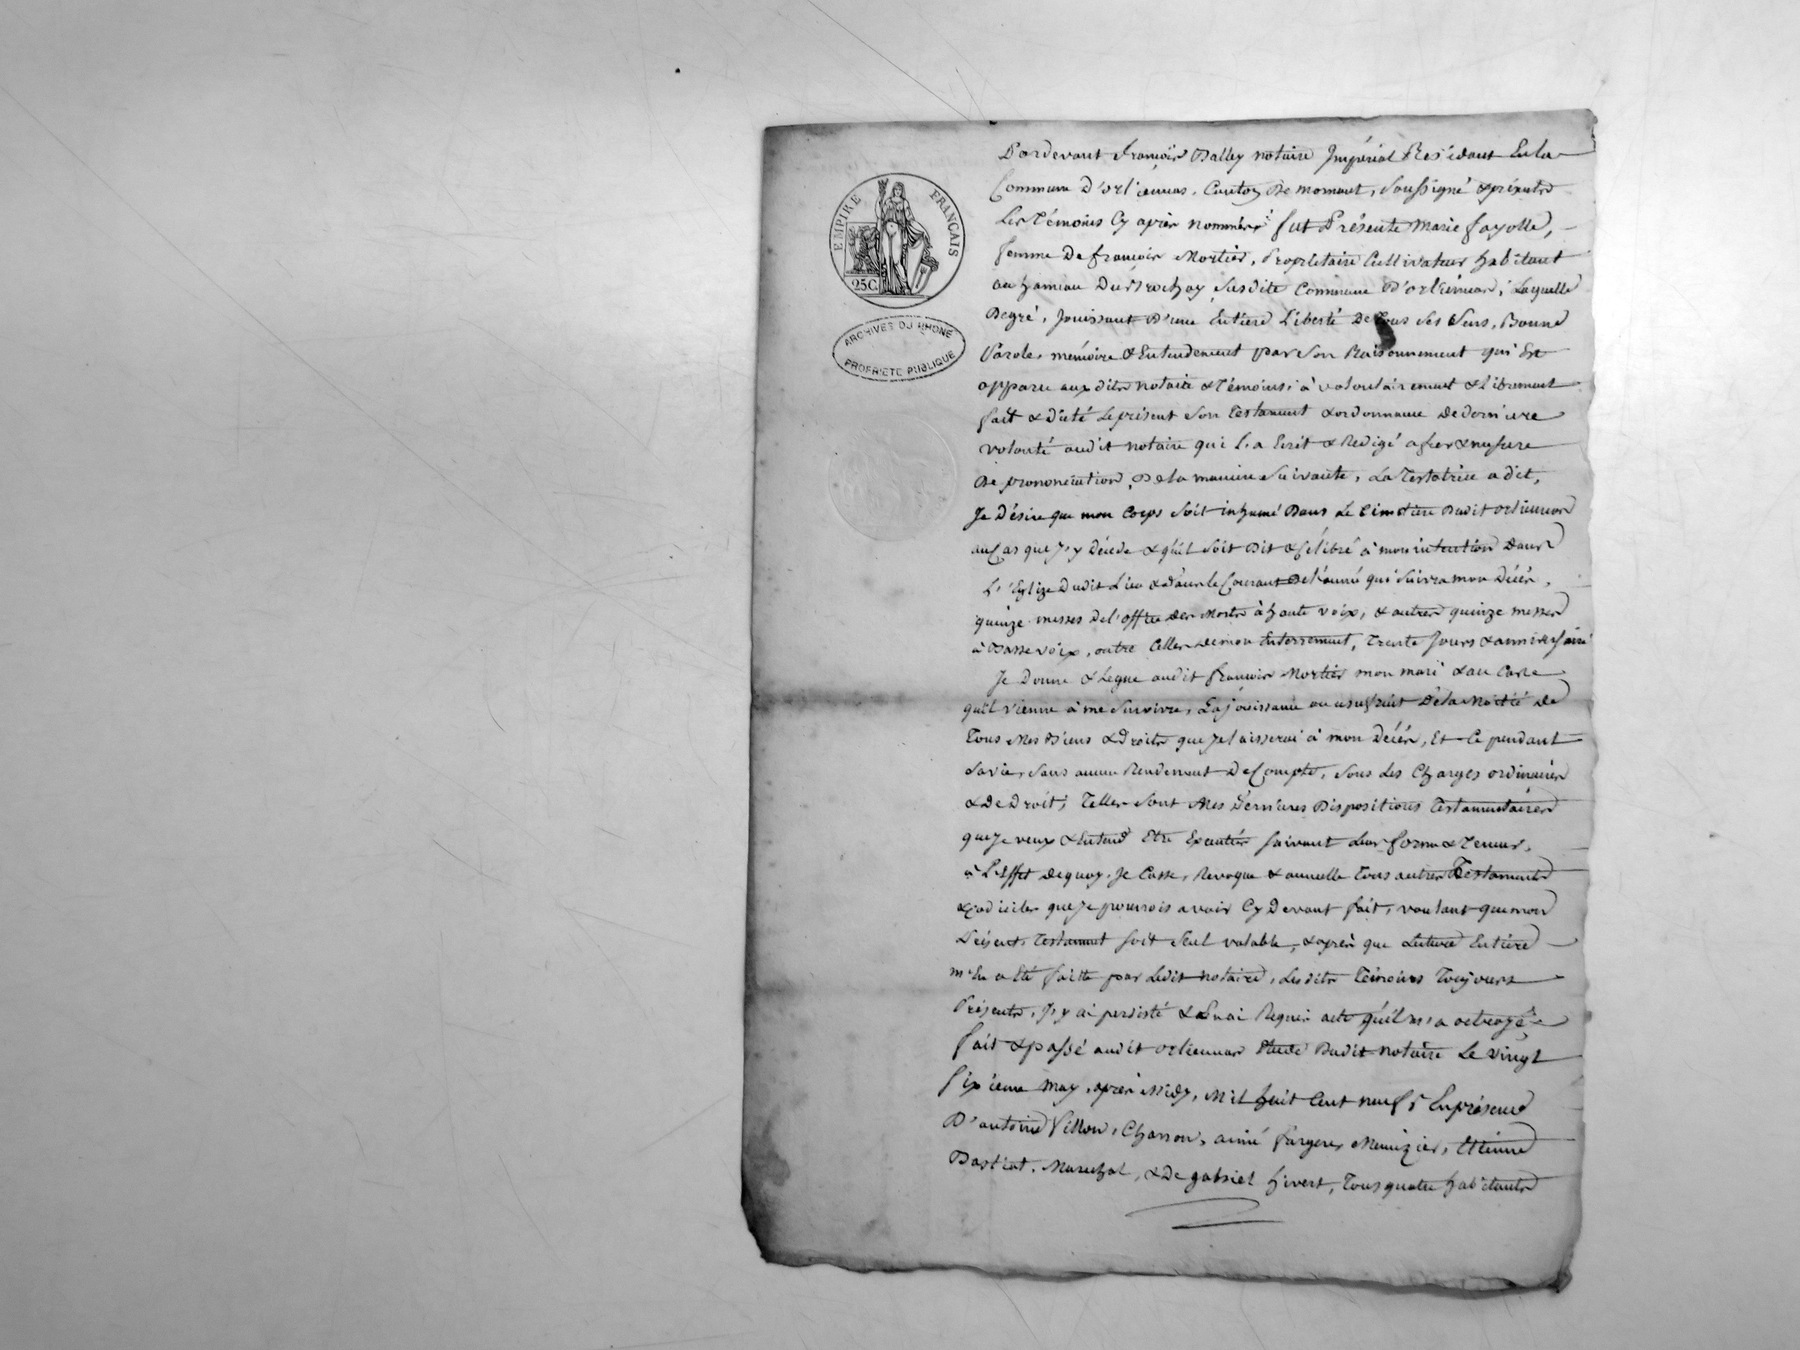 EMPIRE FRANÇAIS
25C.
ARCHIVES DU RHONE
PROPRIETE PUBLIQUE
Pardevant françois Balley notaire Impérial Résidant En la
Commune d'orliénas, Canton De mornant, Soussigné & présents
Les Témoins Cy après nommés; fut Présente Marie fayolle,
femme De françois Mortier, Proprietaire Cultivateur habitant
au hameau Du Susdite Commune D'orliénas, Laquelle
De gré, Jouissant D'une Entiere Liberté De tous Ses Sens, Bonne
Parole, mémoire & Entendement par Son Raisonnement qui Est
apparu aux dits notaire & Témoins, à volontairement & Librement
fait & dicté Le présent Son Testament & ordonnance De derniere
volonté audit notaire qui L'a Ecrit & Redigé a fur & mesure
De prononciation, De la maniere Suivante, La Testatrice a dit,
Je Désire que mon Corps Soit inhumé Dans Le Cimetière Dudit orliénas
au Cas que J'y Décede & qu'il Soit Dit & Célébré à mon intention Dans
L'Eglize Dudit Lieu & dans le Courant De l'année qui Suivra mon Décès,
quinze messes De l'office Des Morts à haute voix, & autres quinze messes
à Basse voix, outre Celles De mon Enterrement, Trente Jours & anniversaire
Je Donne & Legue audit françois Mortier mon mari & au Cas
qu'il vienne à me Survivre, La joüissance ou usufruit De la Moitié de
Tous Mes Biens & Droits que Je laisserai à mon Décès, Et Ce pendant
Sa vie, Sans aucun Rendement De Compte, Sous Les Charges ordinaires
& De Droit; Telles Sont Mes Dernieres Dispositions Testamentaires
que Je veux & Entend Etre Executés Suivant Leur forme & Teneur,
à L'Effet De quoy, Je Casse, Revoque & annulle Tous autres Testaments
& Codiciles que Je pourrois avoir Cy Devant fait, voulant que mon
Présent Testament Soit Seul valable, & après que Lecture Entière
m'En a Eté faitte par Ledit notaire, Les dits Témoins Toujours
Présents, J'y ai persisté & En ai Requis acte qu'il m'a octroyé;
fait & passé audit orliénas Etude Dudit notaire Le vingt
Sixieme May, après Midy, Mil huit Cent neuf, En présence
D'antoine Villon, Charron, aimé fargere, Menuizier, Etienne
Bastiat, Marechal, & De gabriel hivert, Tous quatre habitants